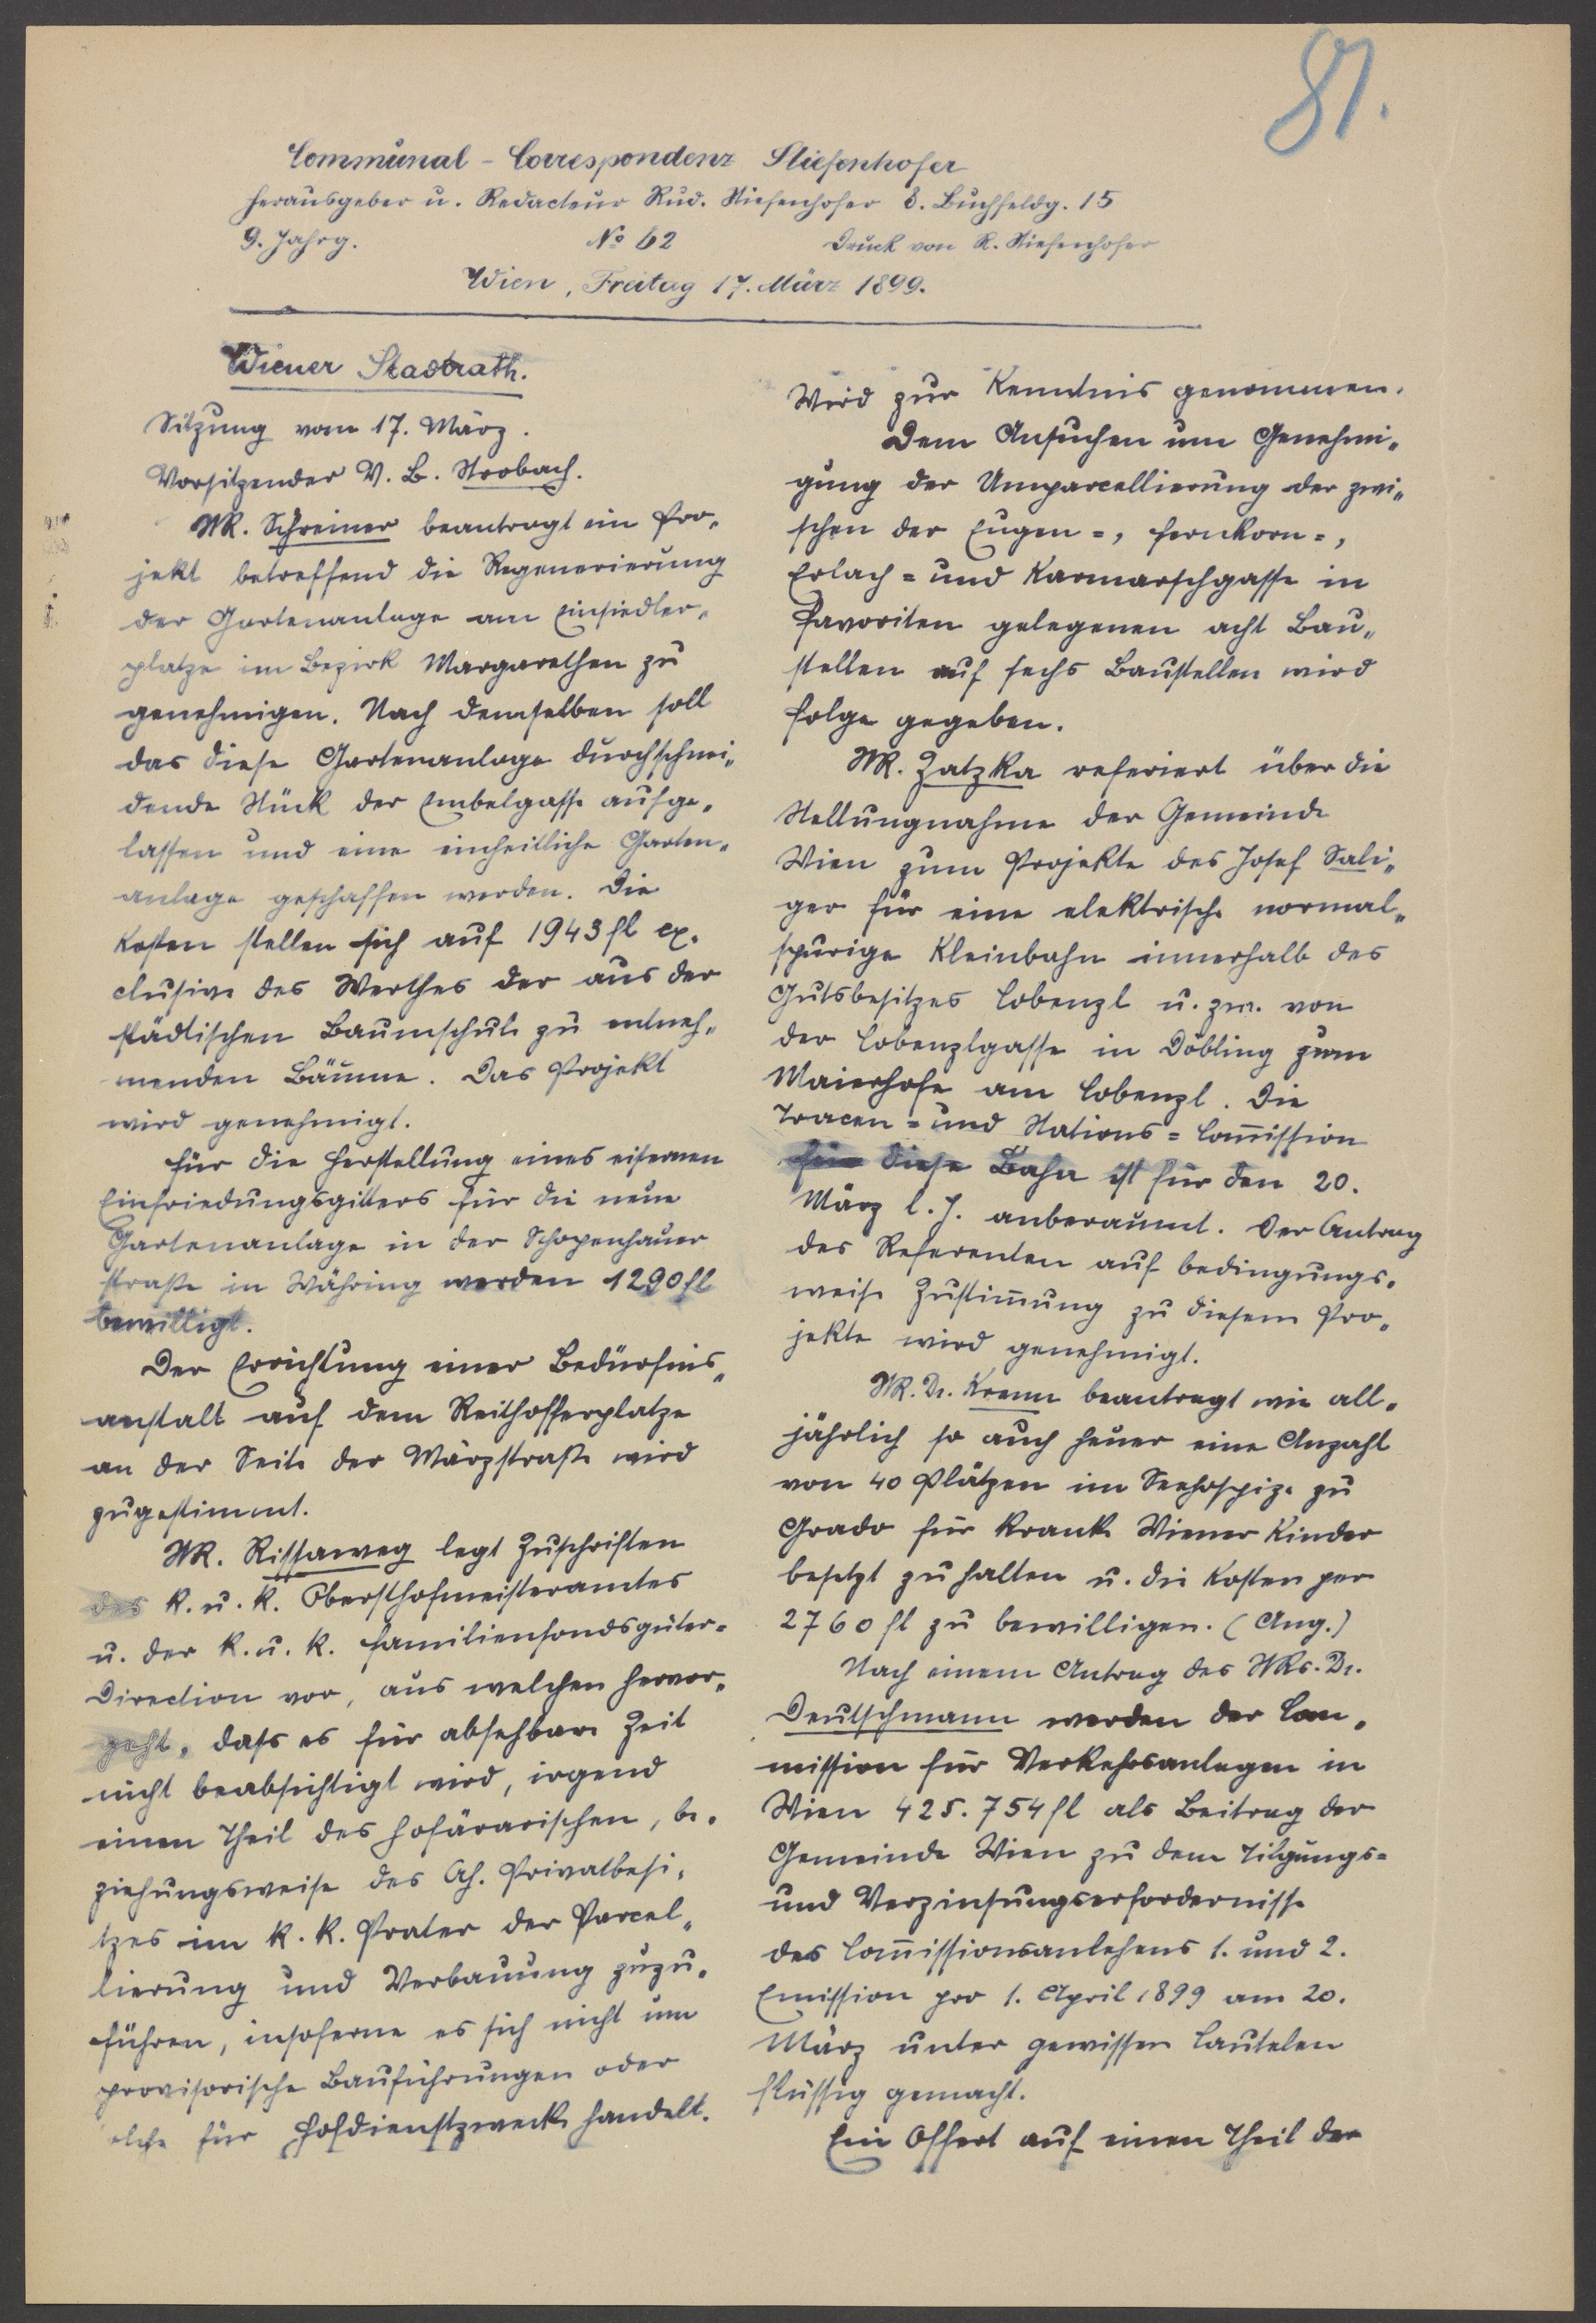 81.
Communal-Correspondenz Stiefenhofer
Herausgeber u. Redacteur Rud. Stiefenhofer 8. Buchfeldg. 15
9. Jahrg. No 62 Druck von R. Stiefenhofer
Wien, Freitag 17. März 1899.
Wiener Stadtrath.
Sitzung vom 17. März.
Vorsitzender V. B. Strobach.
StR. Schreiner beantragt ein Pro„
jekt betreffend die Regenerierung
der Gartenanlage am Einsiedler„
platze im Bezirk Margarethen zu
genehmigen. Nach demselben soll
das diese Gartenanlage durchschnei„
dende Stück der Embelgasse aufge„
lassen und eine einheitliche Garten„
anlage geschaffen werden. Die
Kosten stellen sich auf 1943 fl ex„
clusive des Werthes der aus der
städtischen Baumschule zu entneh„
menden Bäume. Das Projekt
wird genehmigt.
Für die Herstellung eines eisernen
Einfriedungsgitters für die neue
Gartenanlage in der Schopenhauer
straße in Währing werden 1290 fl
bewilligt.
Der Errichtung einer Bedürfnis„
anstalt auf dem Reithofferplatze
an der Seite der Märzstraße wird
zugestimmt.
StR. Rissaweg legt Zuschriften
des k. u. k. Obersthofmeisteramtes
u. der k. u. k. Familienfondsgüter=
Direction vor, aus welchen hervor„
geht, dass es für absehbare Zeit
nicht beabsichtigt wird, irgend
einen Theil des hofärarischen, be„
ziehungsweise des Ah. Privatbesi„
tzes im k. k. Prater der Parcel„
lierung und Verbauung zuzu„
führen, insoferne es sich nicht um
provisorische Bauführungen oder
solche für Hofdienstzwecke handelt.
Wird zur Kenntnis genommen.
Dem Ansuchen um Genehmi„
gung der Umparcellierung der zwi„
schen der Eugen=, Fernkorn=,
Erlach= und Karmarschgasse in
Favoriten gelegenen acht Bau„
stellen auf sechs Baustellen wird
Folge gegeben.
StR. Zatzka referiert über die
Stellungnahme der Gemeinde
Wien zum Projekte des Josef Sali„
ger für eine elektrische normal„
spurige Kleinbahn innerhalb des
Gutsbesitzes Cobenzl u. zw. von
der Cobenzlgasse in Döbling zum
Maierhofe am Cobenzl. Die
Tracen= und Stations=Com̄ission
für diese Bahn ist für den 20.
März l. J. anberaumt. Der Antrag
des Referenten auf bedingungs„
weise Zustim̄ung zu diesem Pro„
jekte wird genehmigt.
StR. Dr. Krenn beantragt wie all„
jährlich so auch heuer eine Anzahl
von 40 Plätzen im Seehospize zu
Grado für kranke Wiener Kinder
besetzt zu halten u. die Kosten per
2760 fl zu bewilligen. (Ang.)
Nach einem Antrag des StRs. Dr.
Deutschmann werden der Com„
mission für Verkehrsanlagen in
Wien 425.754 fl als Beitrag der
Gemeinde Wien zu dem Tilgungs=
und Verzinsungserfordernisse
des Com̄issionsanlehens 1. und 2.
Emission pro 1. April 1899 am 20.
März unter gewissen Cautelen
flüssig gemacht.
Ein Offert auf einen Theil der